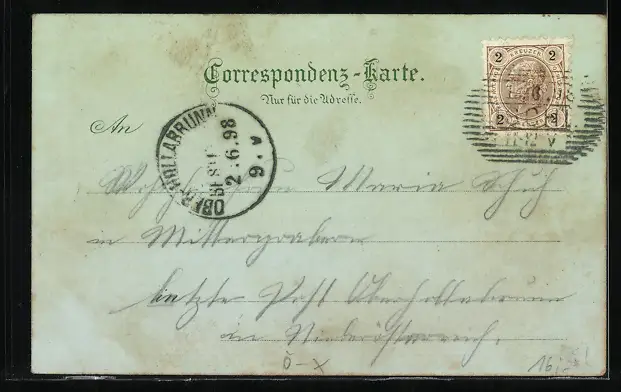 Correspondenz-Karte.
Nur für die Adresse.
An
OBERHOLLABRUNN
BESTELLT
2.6.98
9.V
2 KREUZER 2
2 2
Maria Schuh
in Mittergrabern
letzte Post Oberhollabrunn
in Niederösterreich.
Ö-X
16